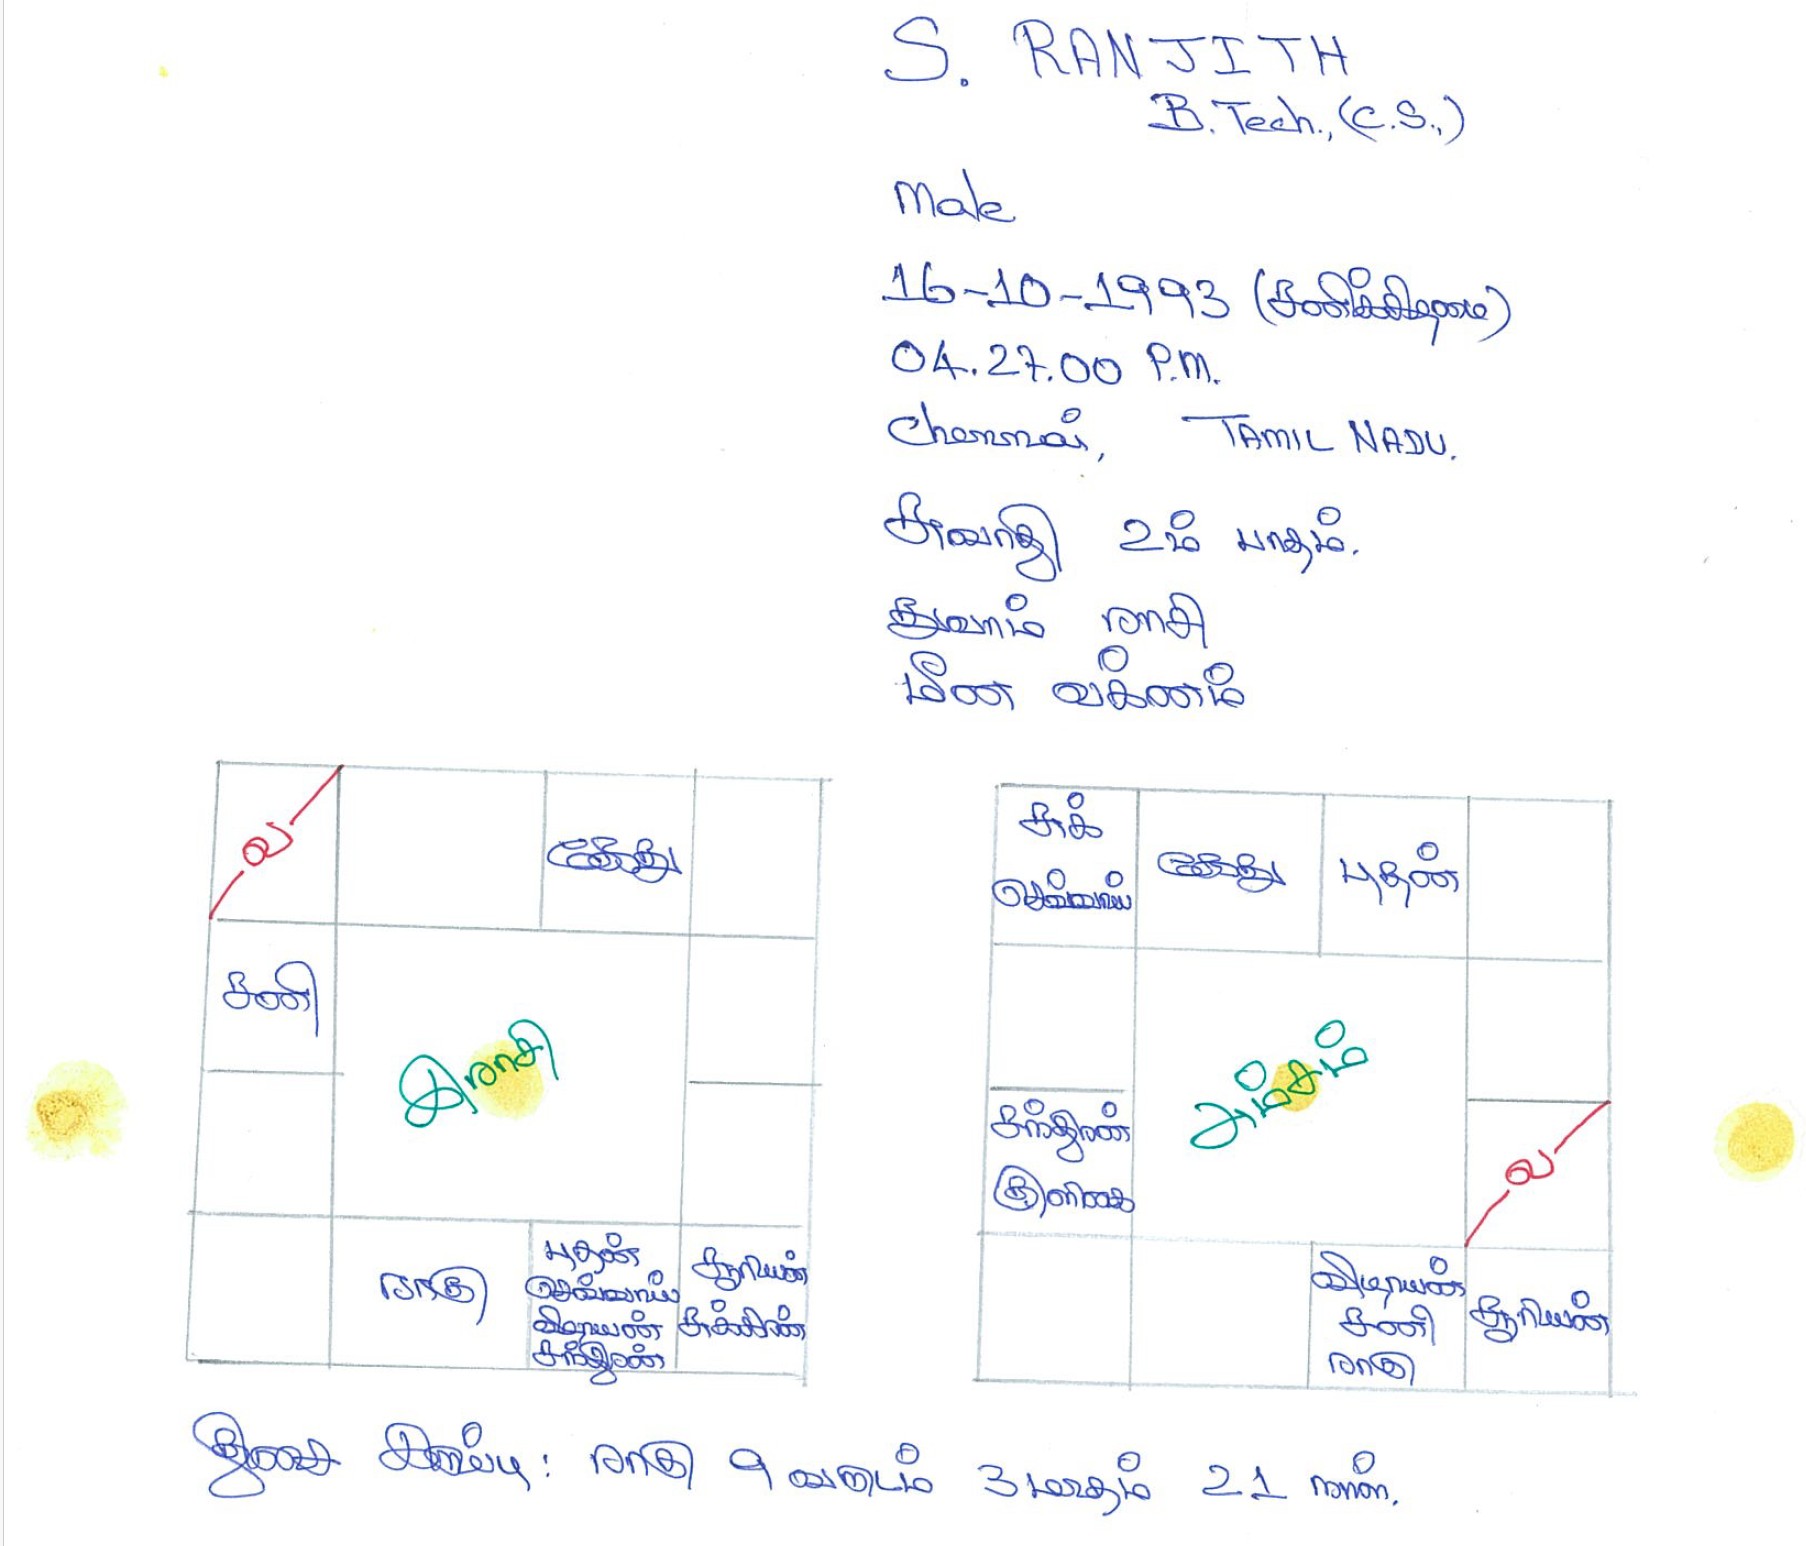 S. RANJITH
B.Tech., (C.S.,)
Male
16-10-1993 (சனிக்கிழமை)
04.27.00 P.M.
Chennai, TAMIL NADU.
சுவாதி 2ம் பாதம்.
துலாம் ராசி
மீன லக்னம்
ல
கேது
சனி
இராசி
ராகு
புதன்
செவ்வாய்
வியாழன்
சந்திரன்
சூரியன்
சுக்கிரன்
சுக்
செவ்வாய்
கேது
புதன்
அம்சம்
சந்திரன்
குளிகை
ல
வியாழன்
சனி
ராகு
சூரியன்
திசை இருப்பு : ராகு 9 வருடம் 3 மாதம் 21 நாள்.